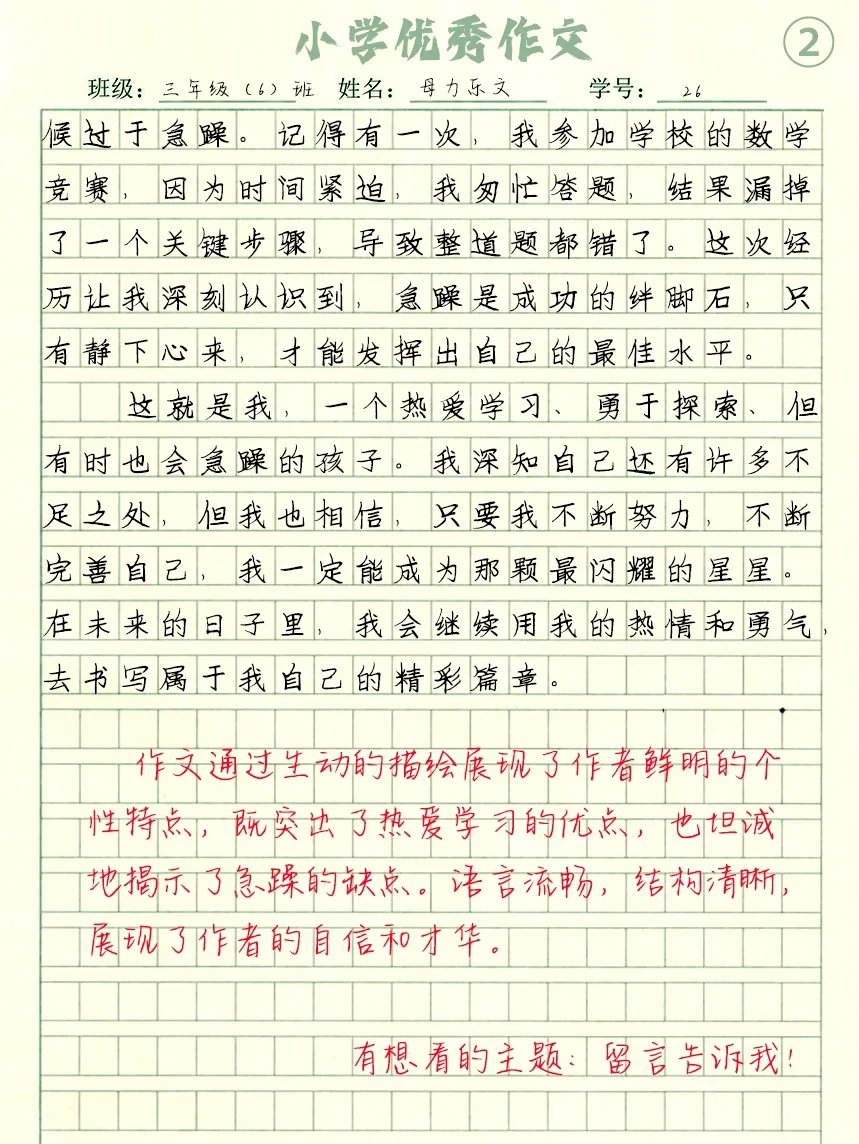 小学优秀作文
2
班级：三年级（6）班 姓名：母力乐文 学号：26
候过于急躁。记得有一次，我参加学校的数学
竞赛，因为时间紧迫，我匆忙答题，结果漏掉
了一个关键步骤，导致整道题都错了。这次经
历让我深刻认识到，急躁是成功的绊脚石，只
有静下心来，才能发挥出自己的最佳水平。
这就是我，一个热爱学习、勇于探索、但
有时也会急躁的孩子。我深知自己还有许多不
足之处，但我也相信，只要我不断努力，不断
完善自己，我一定能成为那颗最闪耀的星星。
在未来的日子里，我会继续用我的热情和勇气，
去书写属于我自己的精彩篇章。
作文通过生动的描绘展现了作者鲜明的个
性特点，既突出了热爱学习的优点，也坦诚
地揭示了急躁的缺点。语言流畅，结构清晰，
展现了作者的自信和才华。
有想看的主题：留言告诉我！